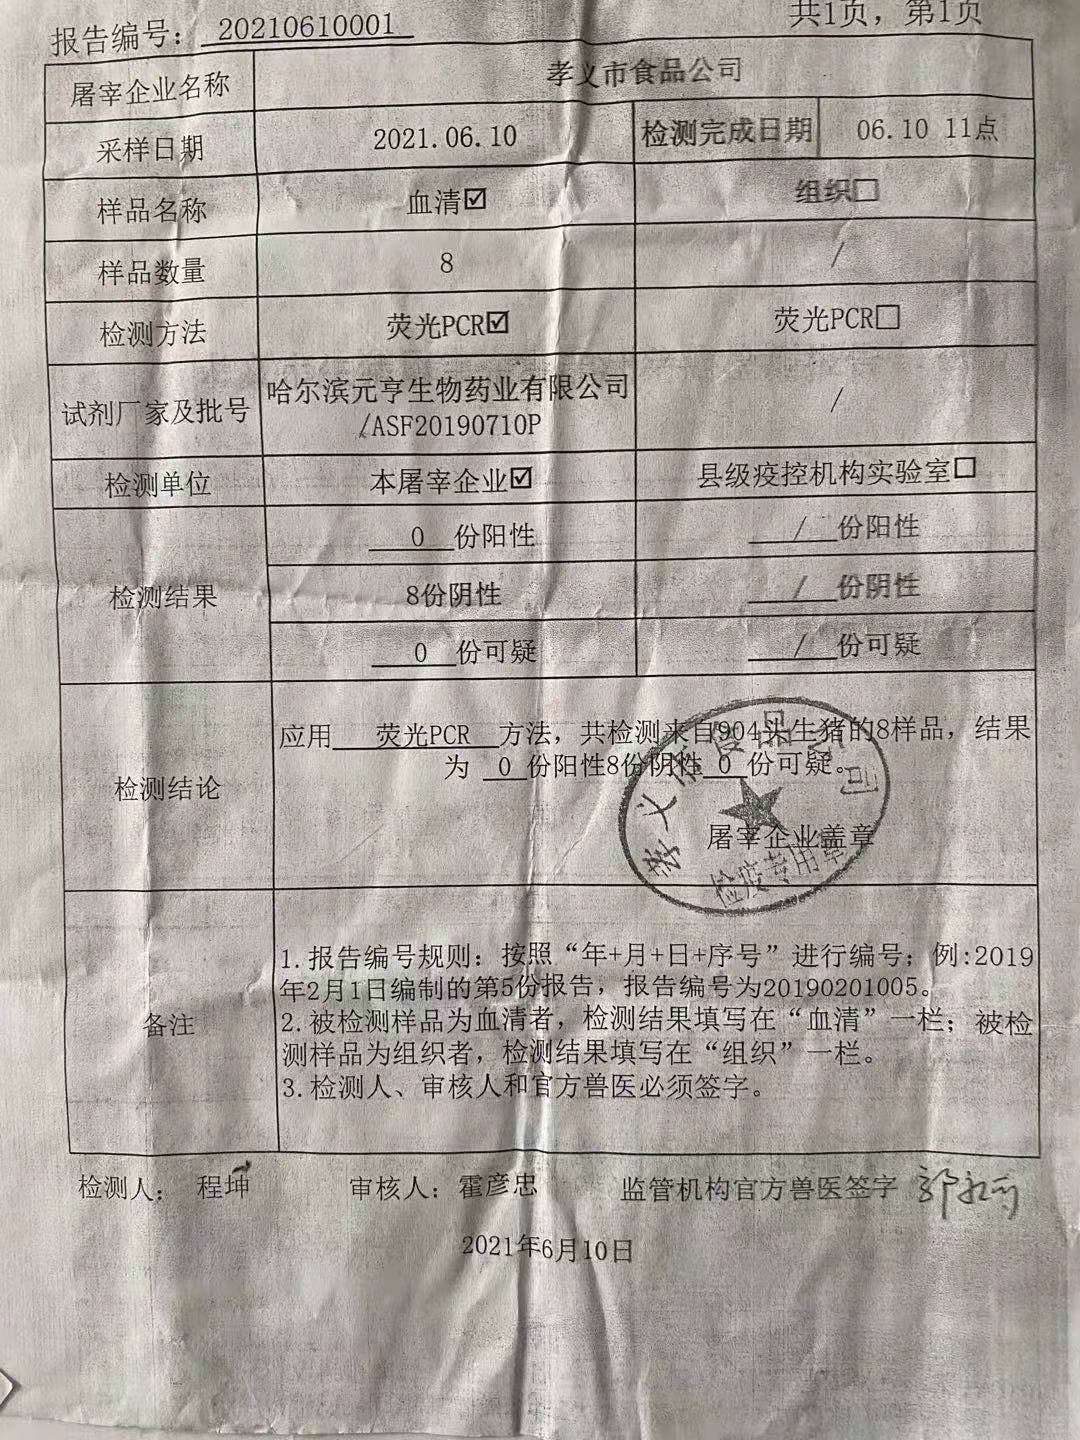 报告编号：20210610001 共1页，第1页
屠宰企业名称 孝义市食品公司
采样日期 2021.06.10 检测完成日期 06.10 11点
样品名称 血清☑ 组织☐
样品数量 8 /
检测方法 荧光PCR☑ 荧光PCR☐
试剂厂家及批号 哈尔滨元亨生物药业有限公司
/ASF20190710P /
检测单位 本屠宰企业☑ 县级疫控机构实验室☐
检测结果 0 份阳性 / 份阳性
8份阴性 / 份阴性
0 份可疑 / 份可疑
检测结论 应用 荧光PCR 方法，共检测来自904头生猪的8样品，结果
为 0 份阳性8份阴性 0 份可疑。
屠宰企业盖章
孝义市食品公司
检疫专用章
备注 1.报告编号规则：按照“年+月+日+序号”进行编号；例:2019
年2月1日编制的第5份报告，报告编号为20190201005。
2.被检测样品为血清者，检测结果填写在“血清”一栏；被检
测样品为组织者，检测结果填写在“组织”一栏。
3.检测人、审核人和官方兽医必须签字。
检测人：程坤 审核人：霍彦忠 监管机构官方兽医签字
2021年6月10日